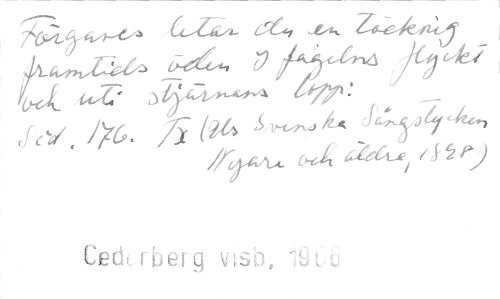 Förgäves letar du en töcknig
framtids öden I fågelns flyckt
och uti stjärnans lopp:
Sid. 176. Tx (Ur Svenska Sångstycken
Nyare och äldre, 1828)
Cederberg visb, 1966